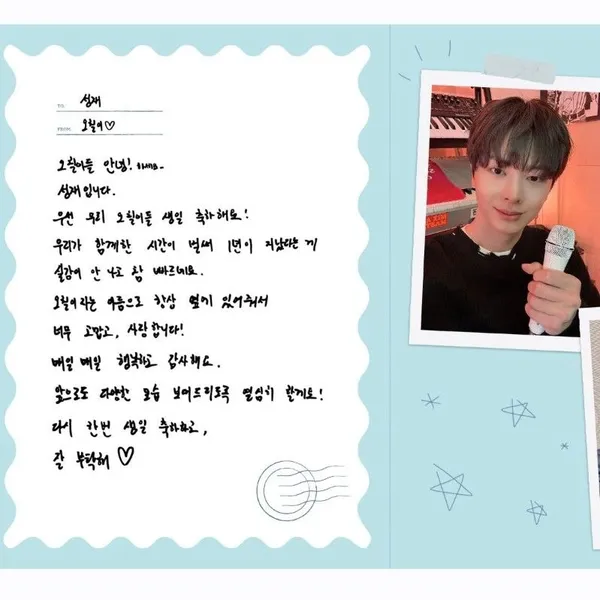 TO. 성재
FROM. 오월이♡
오월이들 안녕! 하세요~
성재입니다.
우선 우리 오월이들 생일 축하해요!
우리가 함께한 시간이 벌써 1년이 지났다는 게
실감이 안 나고 참 빠르네요.
오월이라는 이름으로 항상 옆에 있어줘서
너무 고맙고, 사랑합니다!
매일 매일 행복하고 감사해요.
앞으로도 다양한 모습 보여드리도록 열심히 할게요!
다시 한번 생일 축하하고,
잘 부탁해 ♡